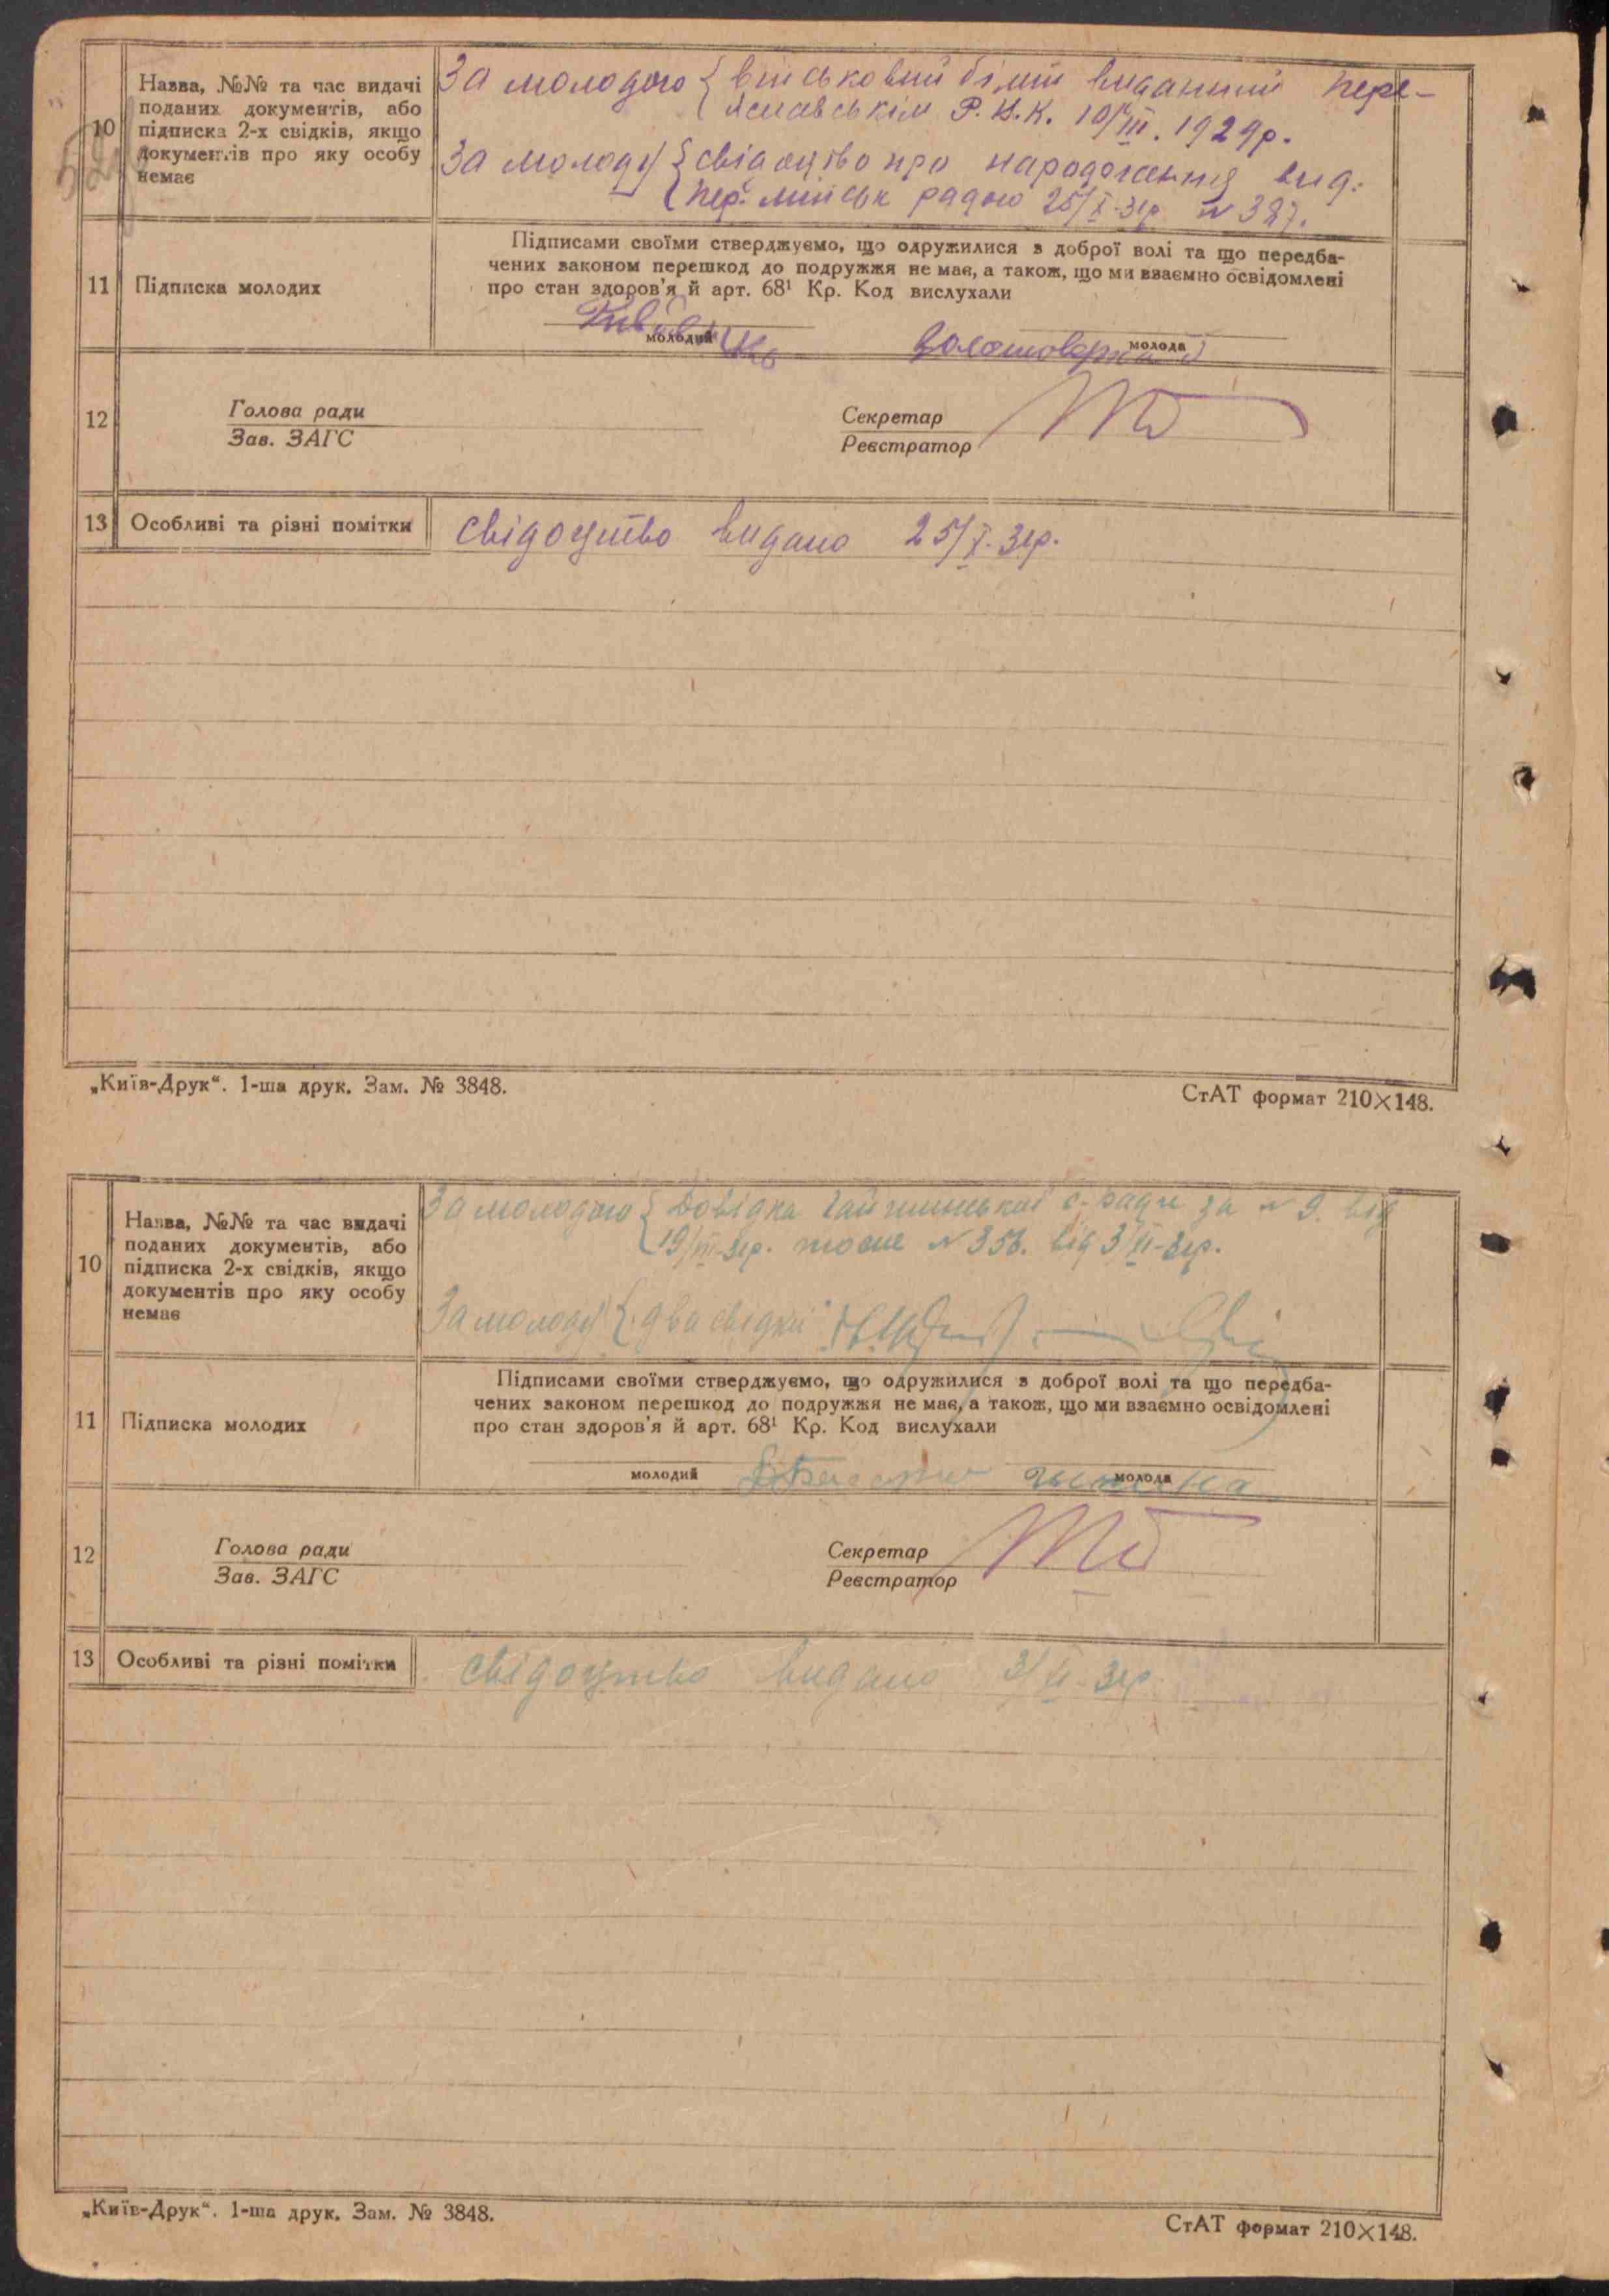 10
Назва, №№ та час видачі
поданих документів, або
підписка 2-х свідків, якщо
документів про яку особу
немає
За молодого { військовий білет виданий Пере-
яславськім Р.В.К. 10/III. 1929р.
За молоду { свідоцтво про народження вид.
Пер. міськ радою 25/X-31р. № 387.
11
Підписка молодих
Підписами своїми стверджуємо, що одружилися з доброї волі та що передба-
чених законом перешкод до подружжя не має, а також, що ми взаємно освідомлені
про стан здоров'я й арт. 68¹ Кр. Код вислухали
молодий
молода
12
Голова ради
Зав. ЗАГС
Секретар
Реєстратор
13
Особливі та різні помітки
Свідоцтво видано 25/X-31р.
„Київ-Друк“. 1-ша друк. Зам. № 3848.
СтАТ формат 210×148.
10
Назва, №№ та час видачі
поданих документів, або
підписка 2-х свідків, якщо
документів про яку особу
немає
За молодого { Довідка Гайшинської с-ради за № 9. від
19/III-31р. тоже № 358. від 3/XI-31р.
За молоду { два свідки
11
Підписка молодих
Підписами своїми стверджуємо, що одружилися з доброї волі та що передба-
чених законом перешкод до подружжя не має, а також, що ми взаємно освідомлені
про стан здоров'я й арт. 68¹ Кр. Код вислухали
молодий
молода
12
Голова ради
Зав. ЗАГС
Секретар
Реєстратор
13
Особливі та різні помітки
Свідоцтво видано 3/XI-31р.
„Київ-Друк“. 1-ша друк. Зам. № 3848.
СтАТ формат 210×148.